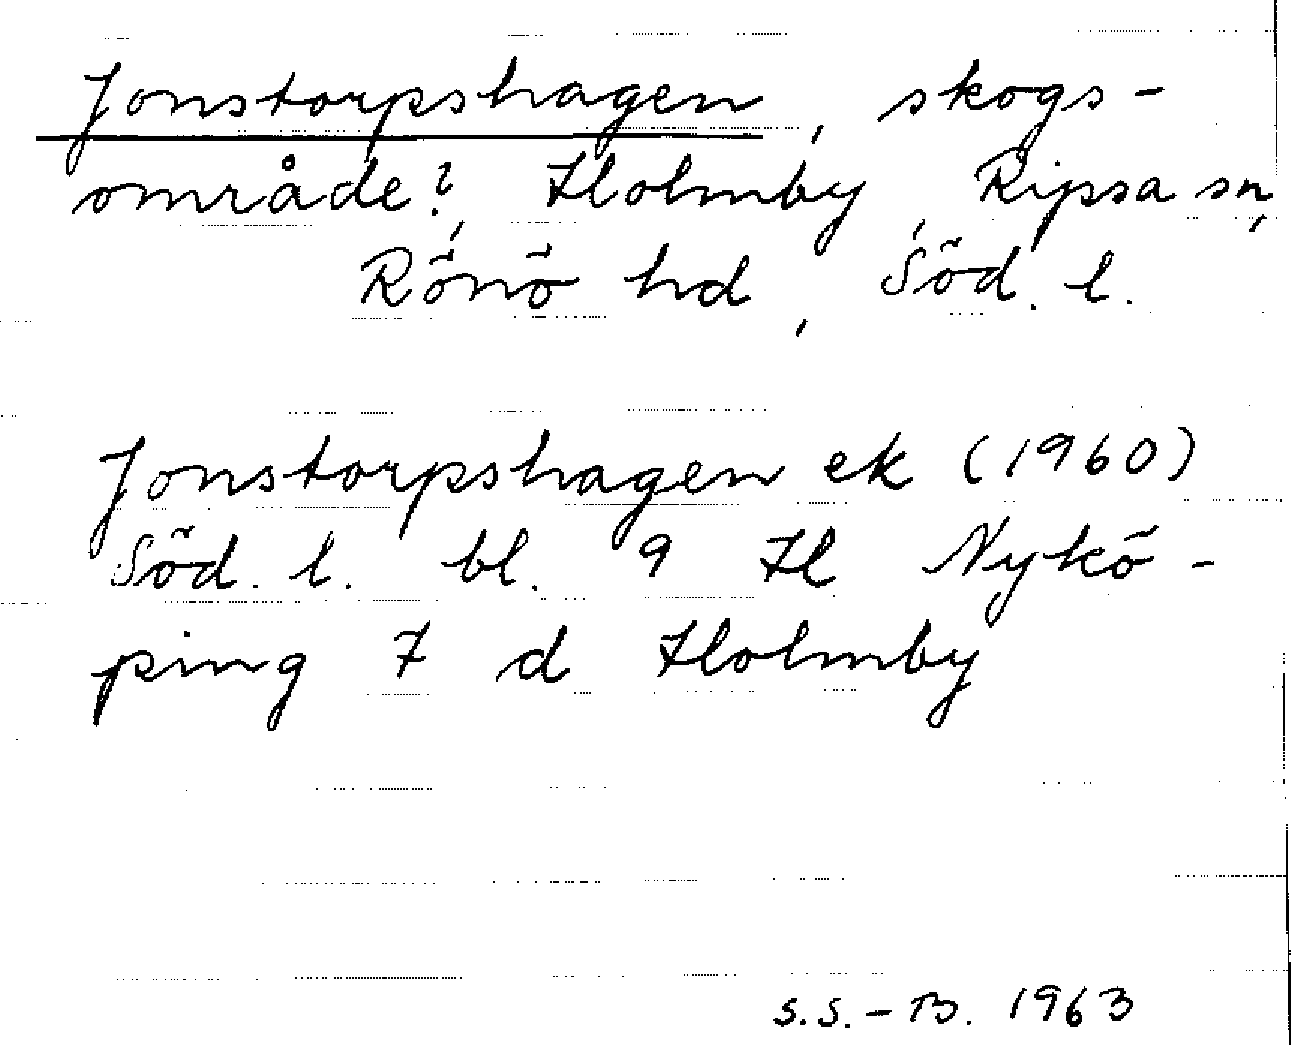 Jonstorpshagen, skogs-
område?, Holmby, Ripsa sn,
Rönö hd, Söd. l.
Jonstorpshagen ek (1960)
Söd. l. bl. 9 Hl Nykö-
ping 7 d Holmby
S.S.-B. 1963